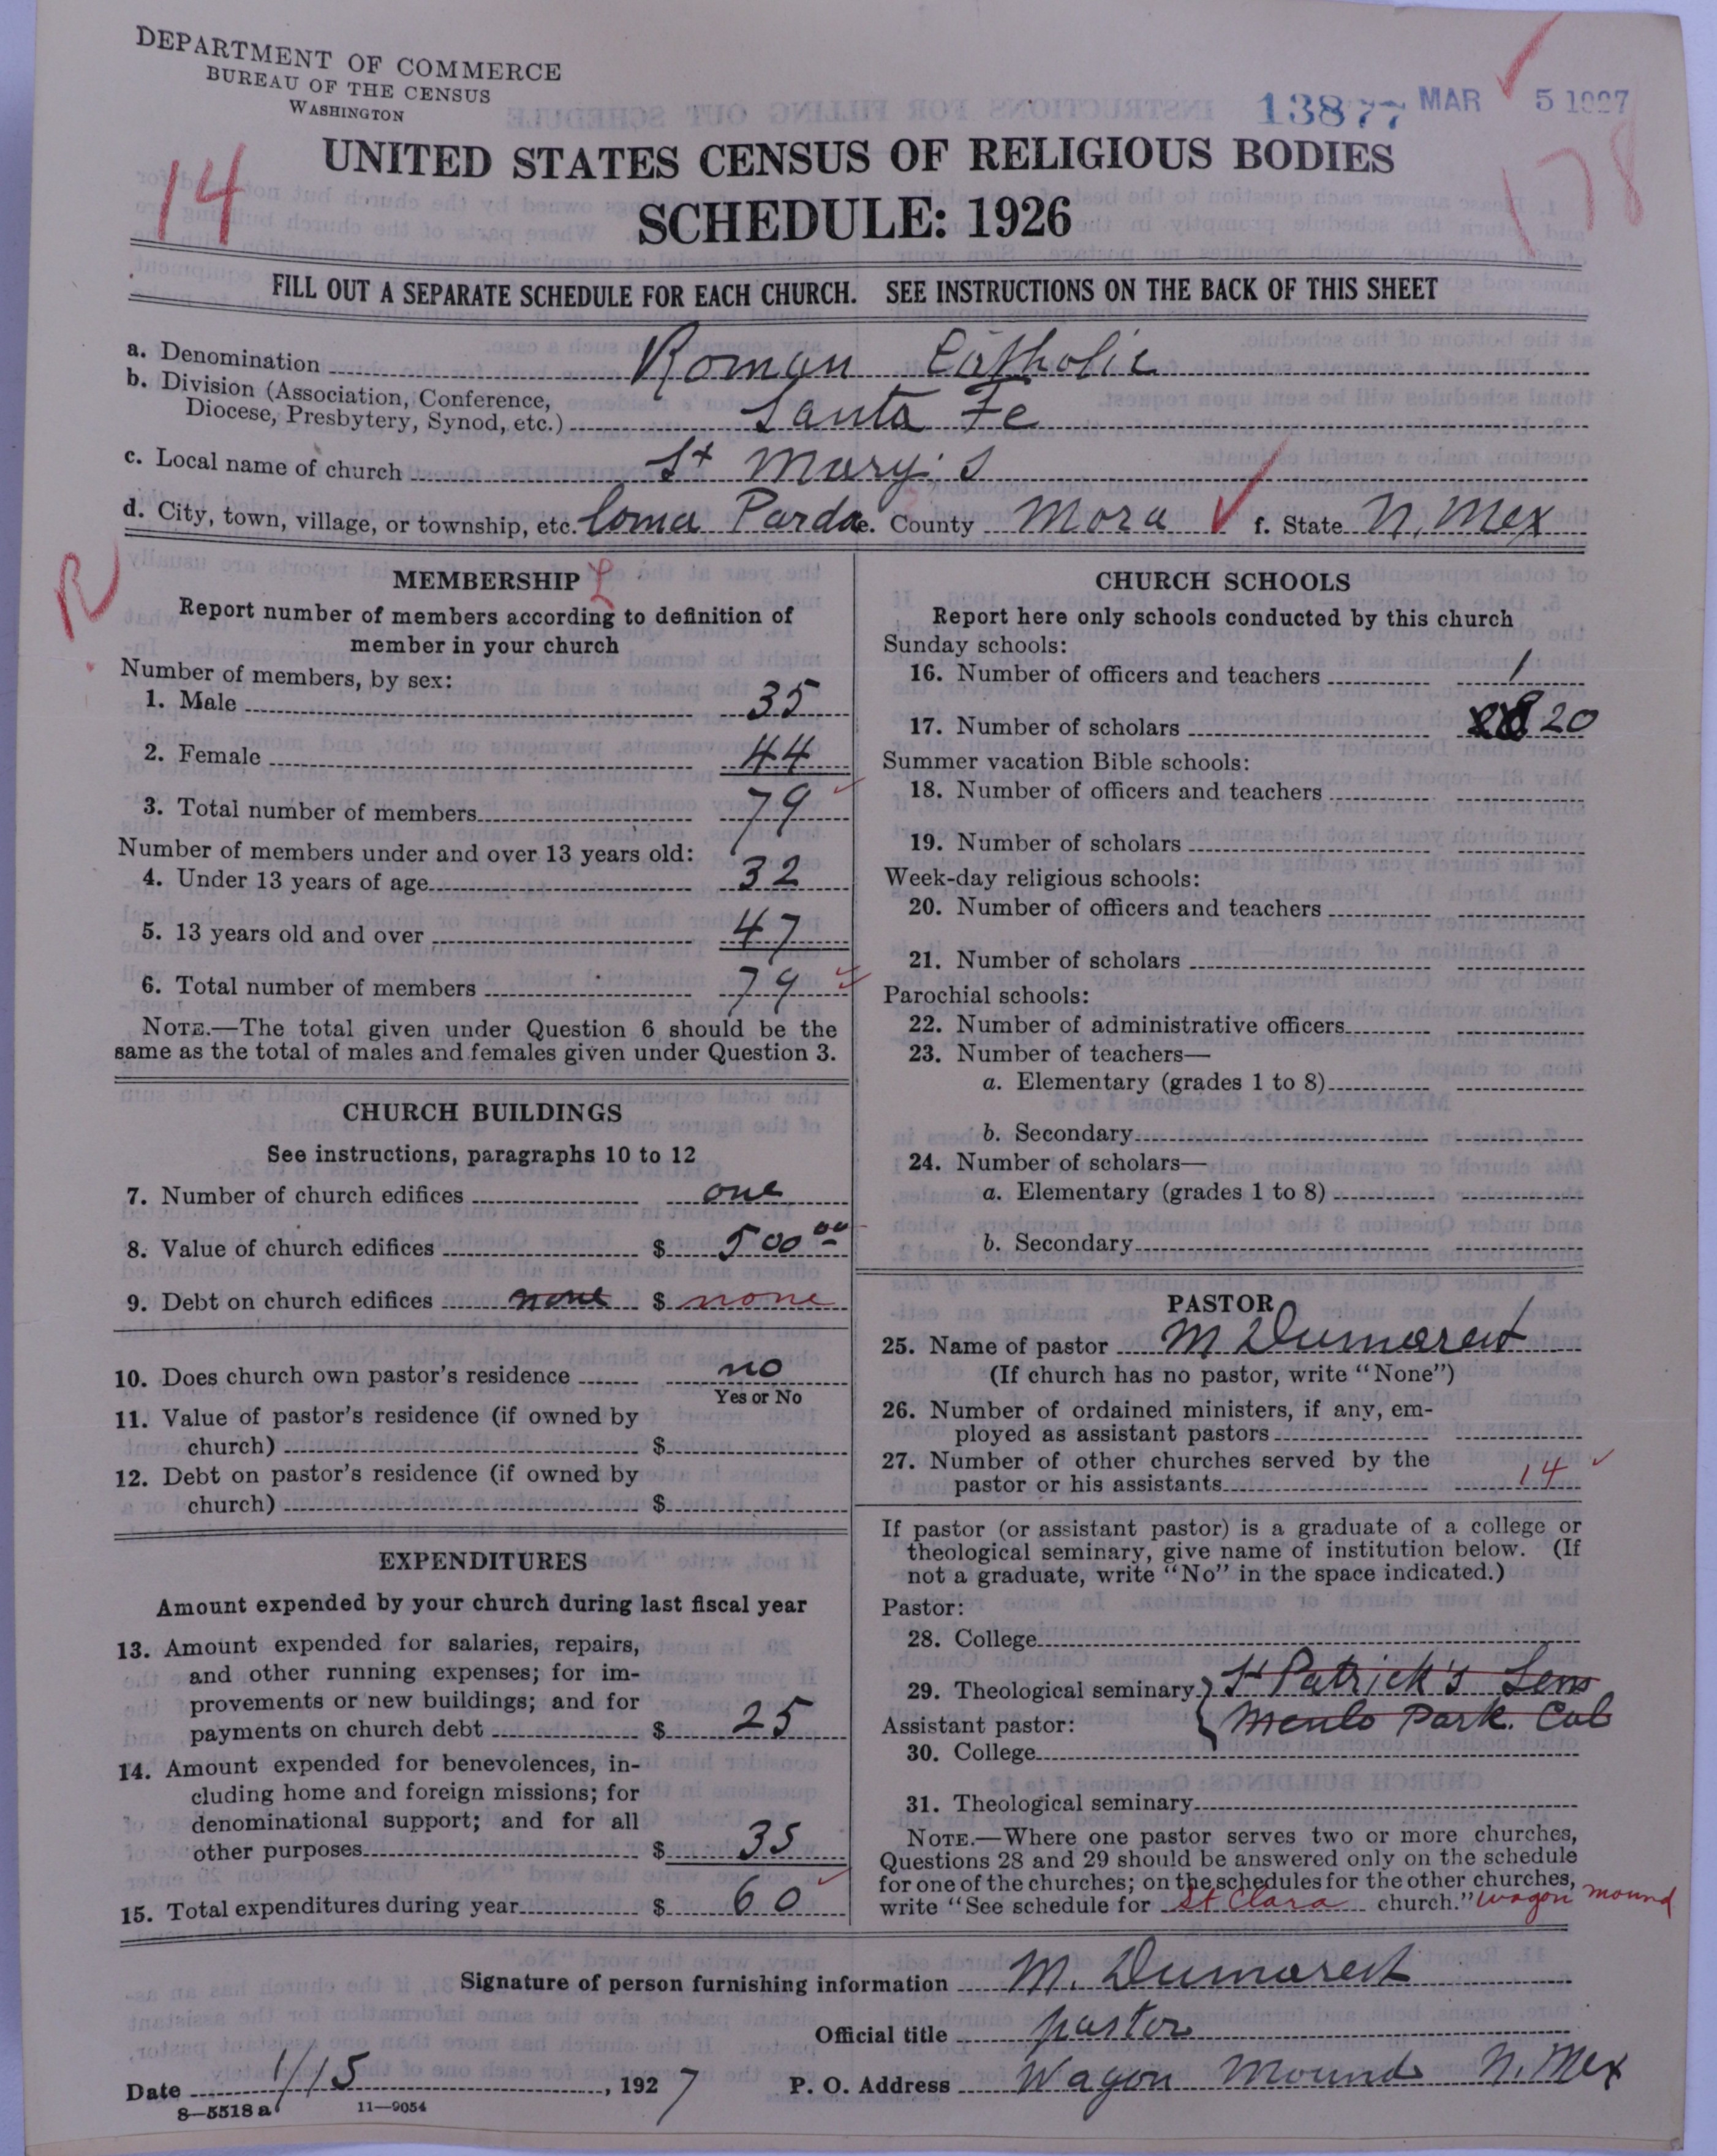 DEPARTMENT OF COMMERCE
BUREAU OF THE CENSUS
WASHINGTON
13877 MAR 5 1927
14
178
UNITED STATES CENSUS OF RELIGIOUS BODIES
SCHEDULE: 1926
FILL OUT A SEPARATE SCHEDULE FOR EACH CHURCH. SEE INSTRUCTIONS ON THE BACK OF THIS SHEET
a. Denomination Roman Catholic
b. Division (Association, Conference,
Diocese, Presbytery, Synod, etc.) Santa Fe
c. Local name of church St Mary's
d. City, town, village, or township, etc. Loma Parda e. County Mora f. State N. Mex
R
MEMBERSHIP L
Report number of members according to definition of
member in your church
Number of members, by sex:
1. Male 35
2. Female 44
3. Total number of members 79
Number of members under and over 13 years old:
4. Under 13 years of age 32
5. 13 years old and over 47
6. Total number of members 79
NOTE.—The total given under Question 6 should be the
same as the total of males and females given under Question 3.
CHURCH BUILDINGS
See instructions, paragraphs 10 to 12
7. Number of church edifices one
8. Value of church edifices $ 500 00
9. Debt on church edifices none $ none
10. Does church own pastor's residence no
Yes or No
11. Value of pastor's residence (if owned by
church) $
12. Debt on pastor's residence (if owned by
church) $
EXPENDITURES
Amount expended by your church during last fiscal year
13. Amount expended for salaries, repairs,
and other running expenses; for im-
provements or new buildings; and for
payments on church debt $ 25
14. Amount expended for benevolences, in-
cluding home and foreign missions; for
denominational support; and for all
other purposes $ 35
15. Total expenditures during year $ 60
CHURCH SCHOOLS
Report here only schools conducted by this church
Sunday schools:
16. Number of officers and teachers 1
17. Number of scholars 20
Summer vacation Bible schools:
18. Number of officers and teachers
19. Number of scholars
Week-day religious schools:
20. Number of officers and teachers
21. Number of scholars
Parochial schools:
22. Number of administrative officers
23. Number of teachers—
a. Elementary (grades 1 to 8)
b. Secondary
24. Number of scholars—
a. Elementary (grades 1 to 8)
b. Secondary
PASTOR
25. Name of pastor M Dumarest
(If church has no pastor, write "None")
26. Number of ordained ministers, if any, em-
ployed as assistant pastors
27. Number of other churches served by the
pastor or his assistants 14
If pastor (or assistant pastor) is a graduate of a college or
theological seminary, give name of institution below. (If
not a graduate, write "No" in the space indicated.)
Pastor:
28. College
29. Theological seminary St Patrick's Sem
Assistant pastor: Menlo Park. Cal
30. College
31. Theological seminary
NOTE.—Where one pastor serves two or more churches,
Questions 28 and 29 should be answered only on the schedule
for one of the churches; on the schedules for the other churches,
write "See schedule for St Clara church." Wagon Mound
Signature of person furnishing information M. Dumarest
Official title pastor
Date 1/15, 1927 P. O. Address Wagon Mound N. Mex
8—5518 a 11—9054